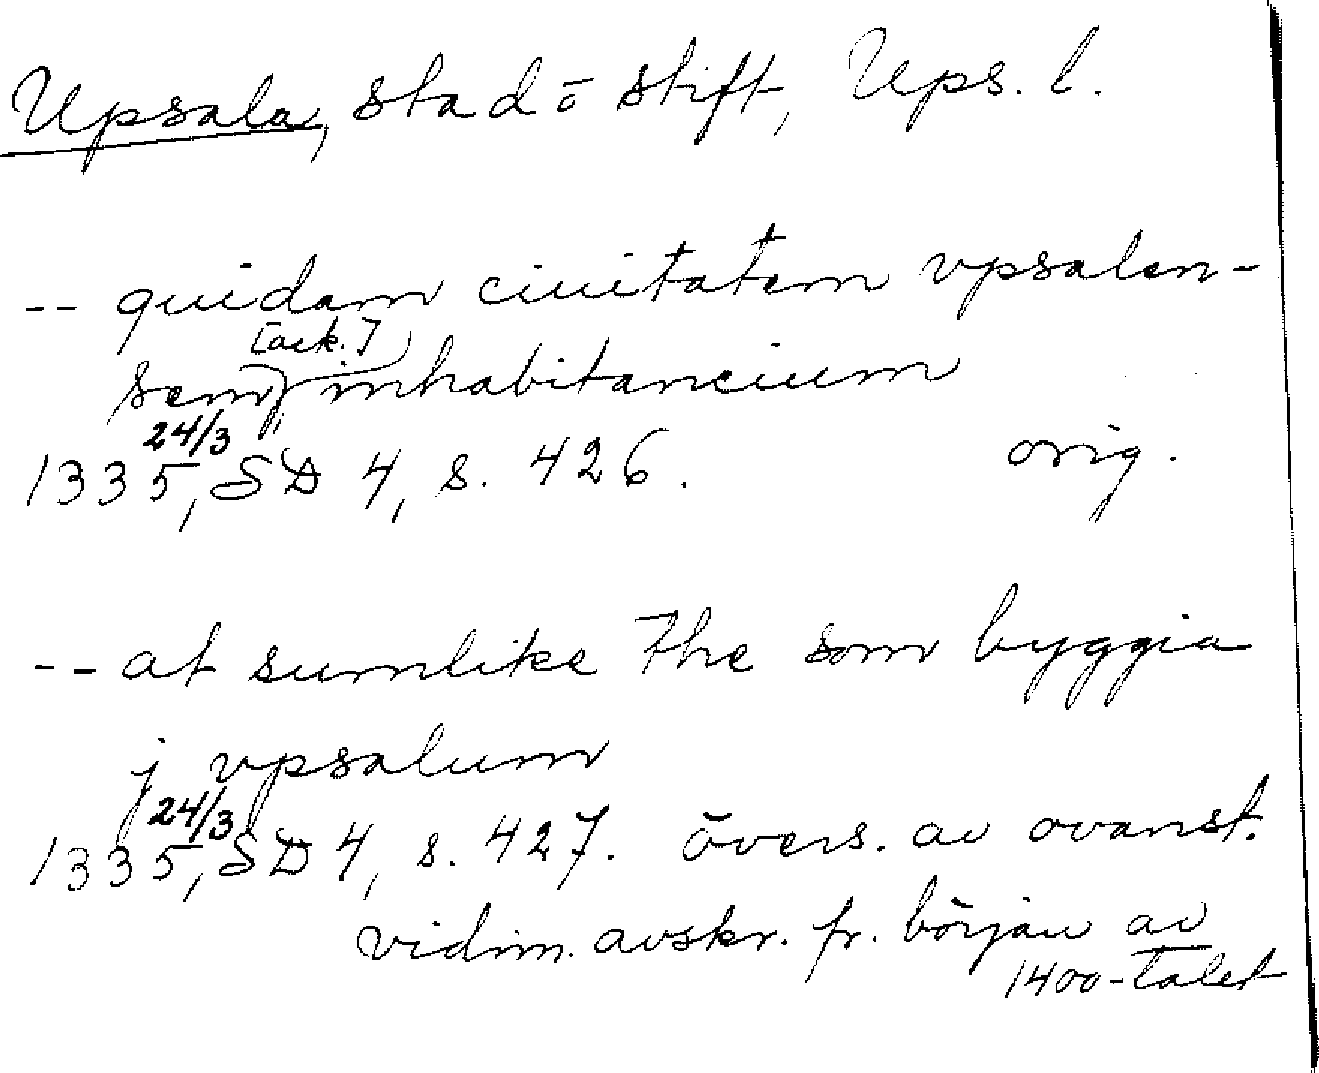 Upsala, stad ō stift, Ups. l.
-- quidam ciuitatem vpsalen-
[ack.]
sem, inhabitancium
24/3
1335, SD 4, s. 426. orig.
-- at sumlike the som byggia
j vpsalum
24/3
1335, SD 4, s. 427. övers. av ovanst.
vidim. avskr. fr. början av
1400-talet